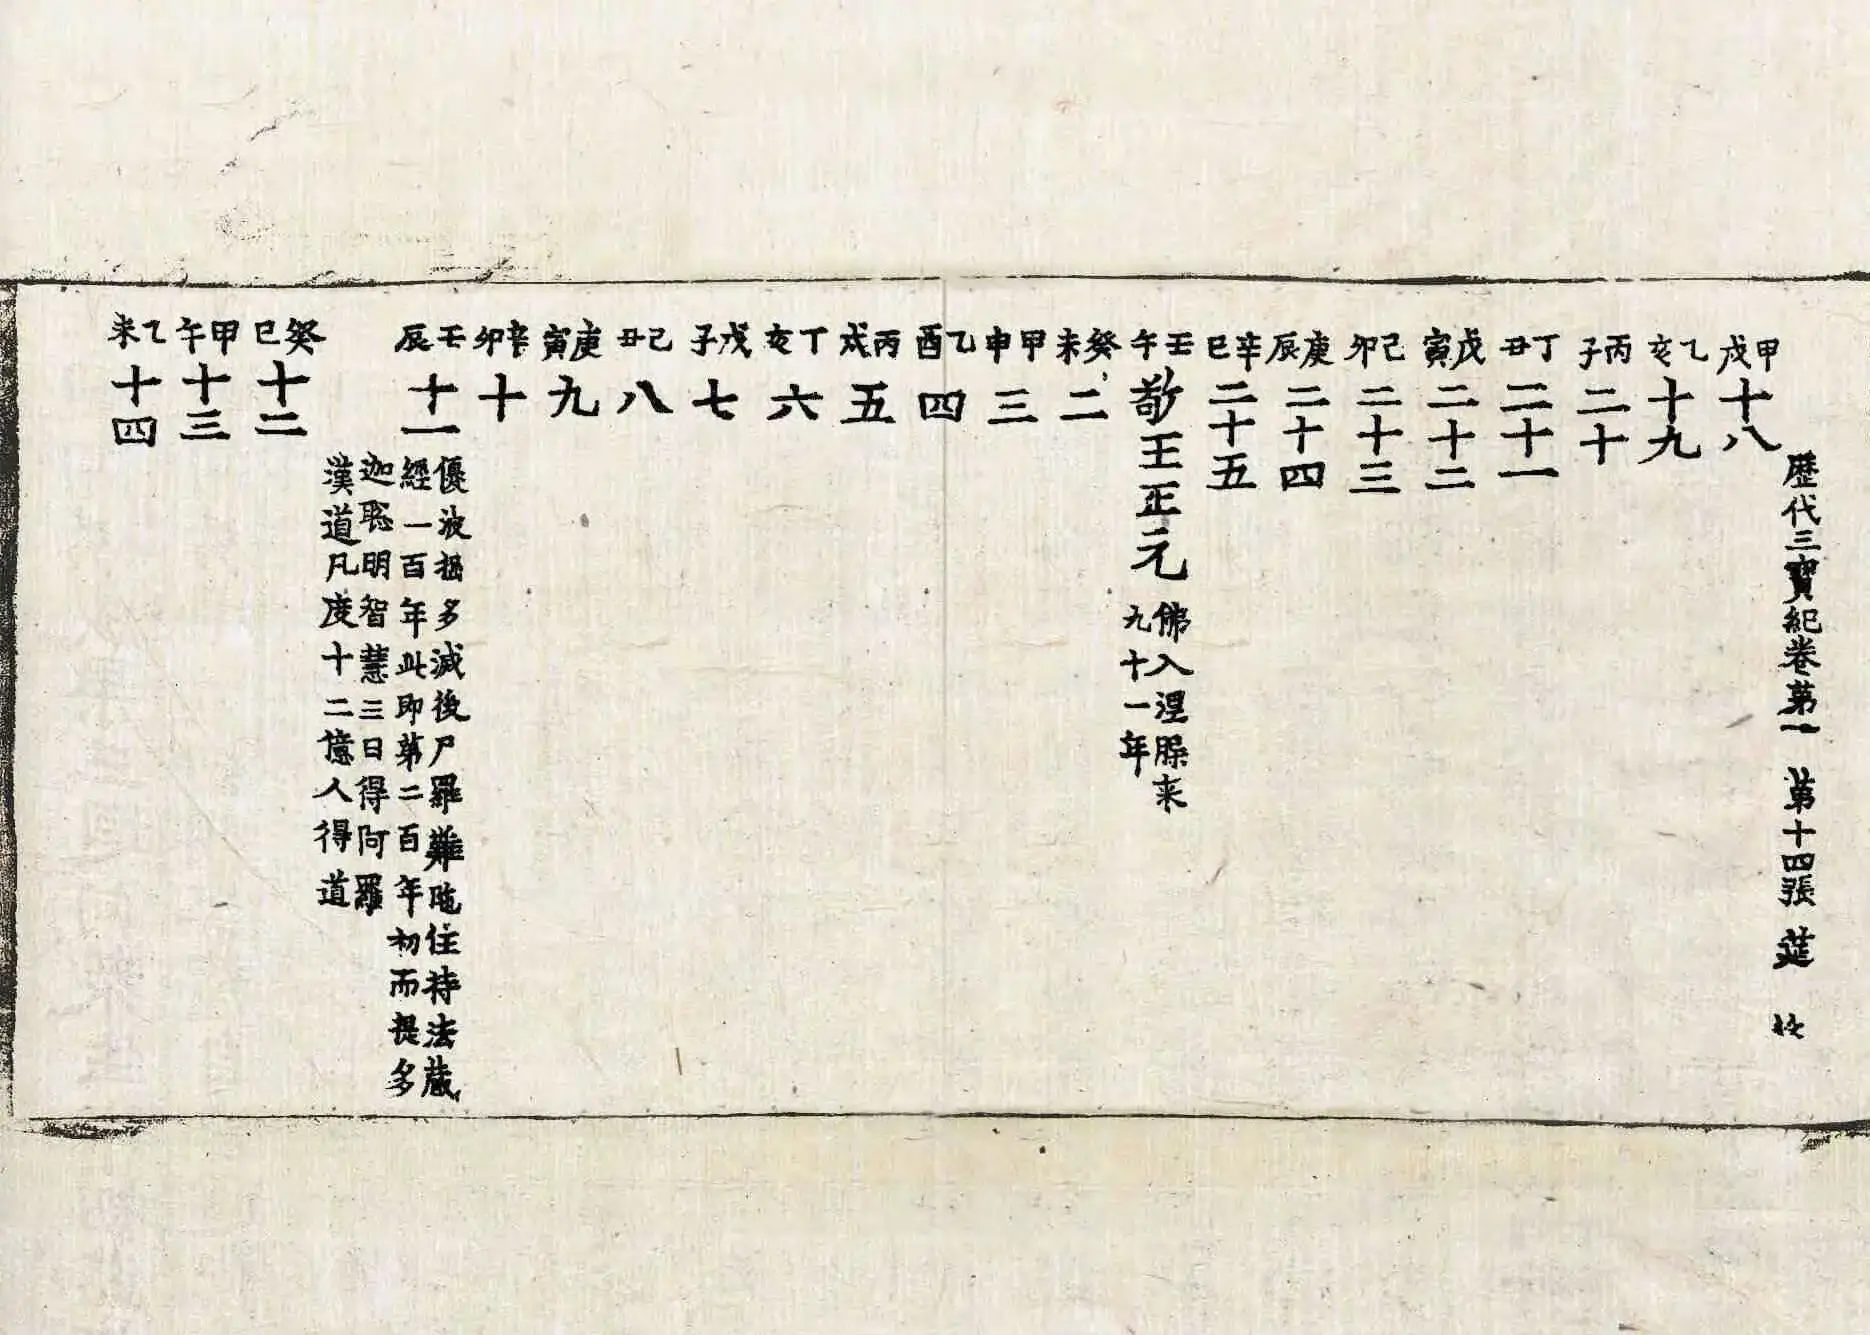 歷代三寶紀卷第一 第十四張 莚
甲戌十八
乙亥十九
丙子二十
丁丑二十一
戊寅二十二
己卯二十三
庚辰二十四
辛巳二十五
壬午敬王正元 佛入涅槃来
九十一年
癸未二
甲申三
乙酉四
丙戌五
丁亥六
戊子七
己丑八
庚寅九
辛卯十
壬辰十一 優波掘多滅後尸羅難陁住持法藏
經一百年此即第二百年初而提多
迦聡明智慧三日得阿羅
漢道凡度十二億人得道
癸巳十二
甲午十三
乙未十四